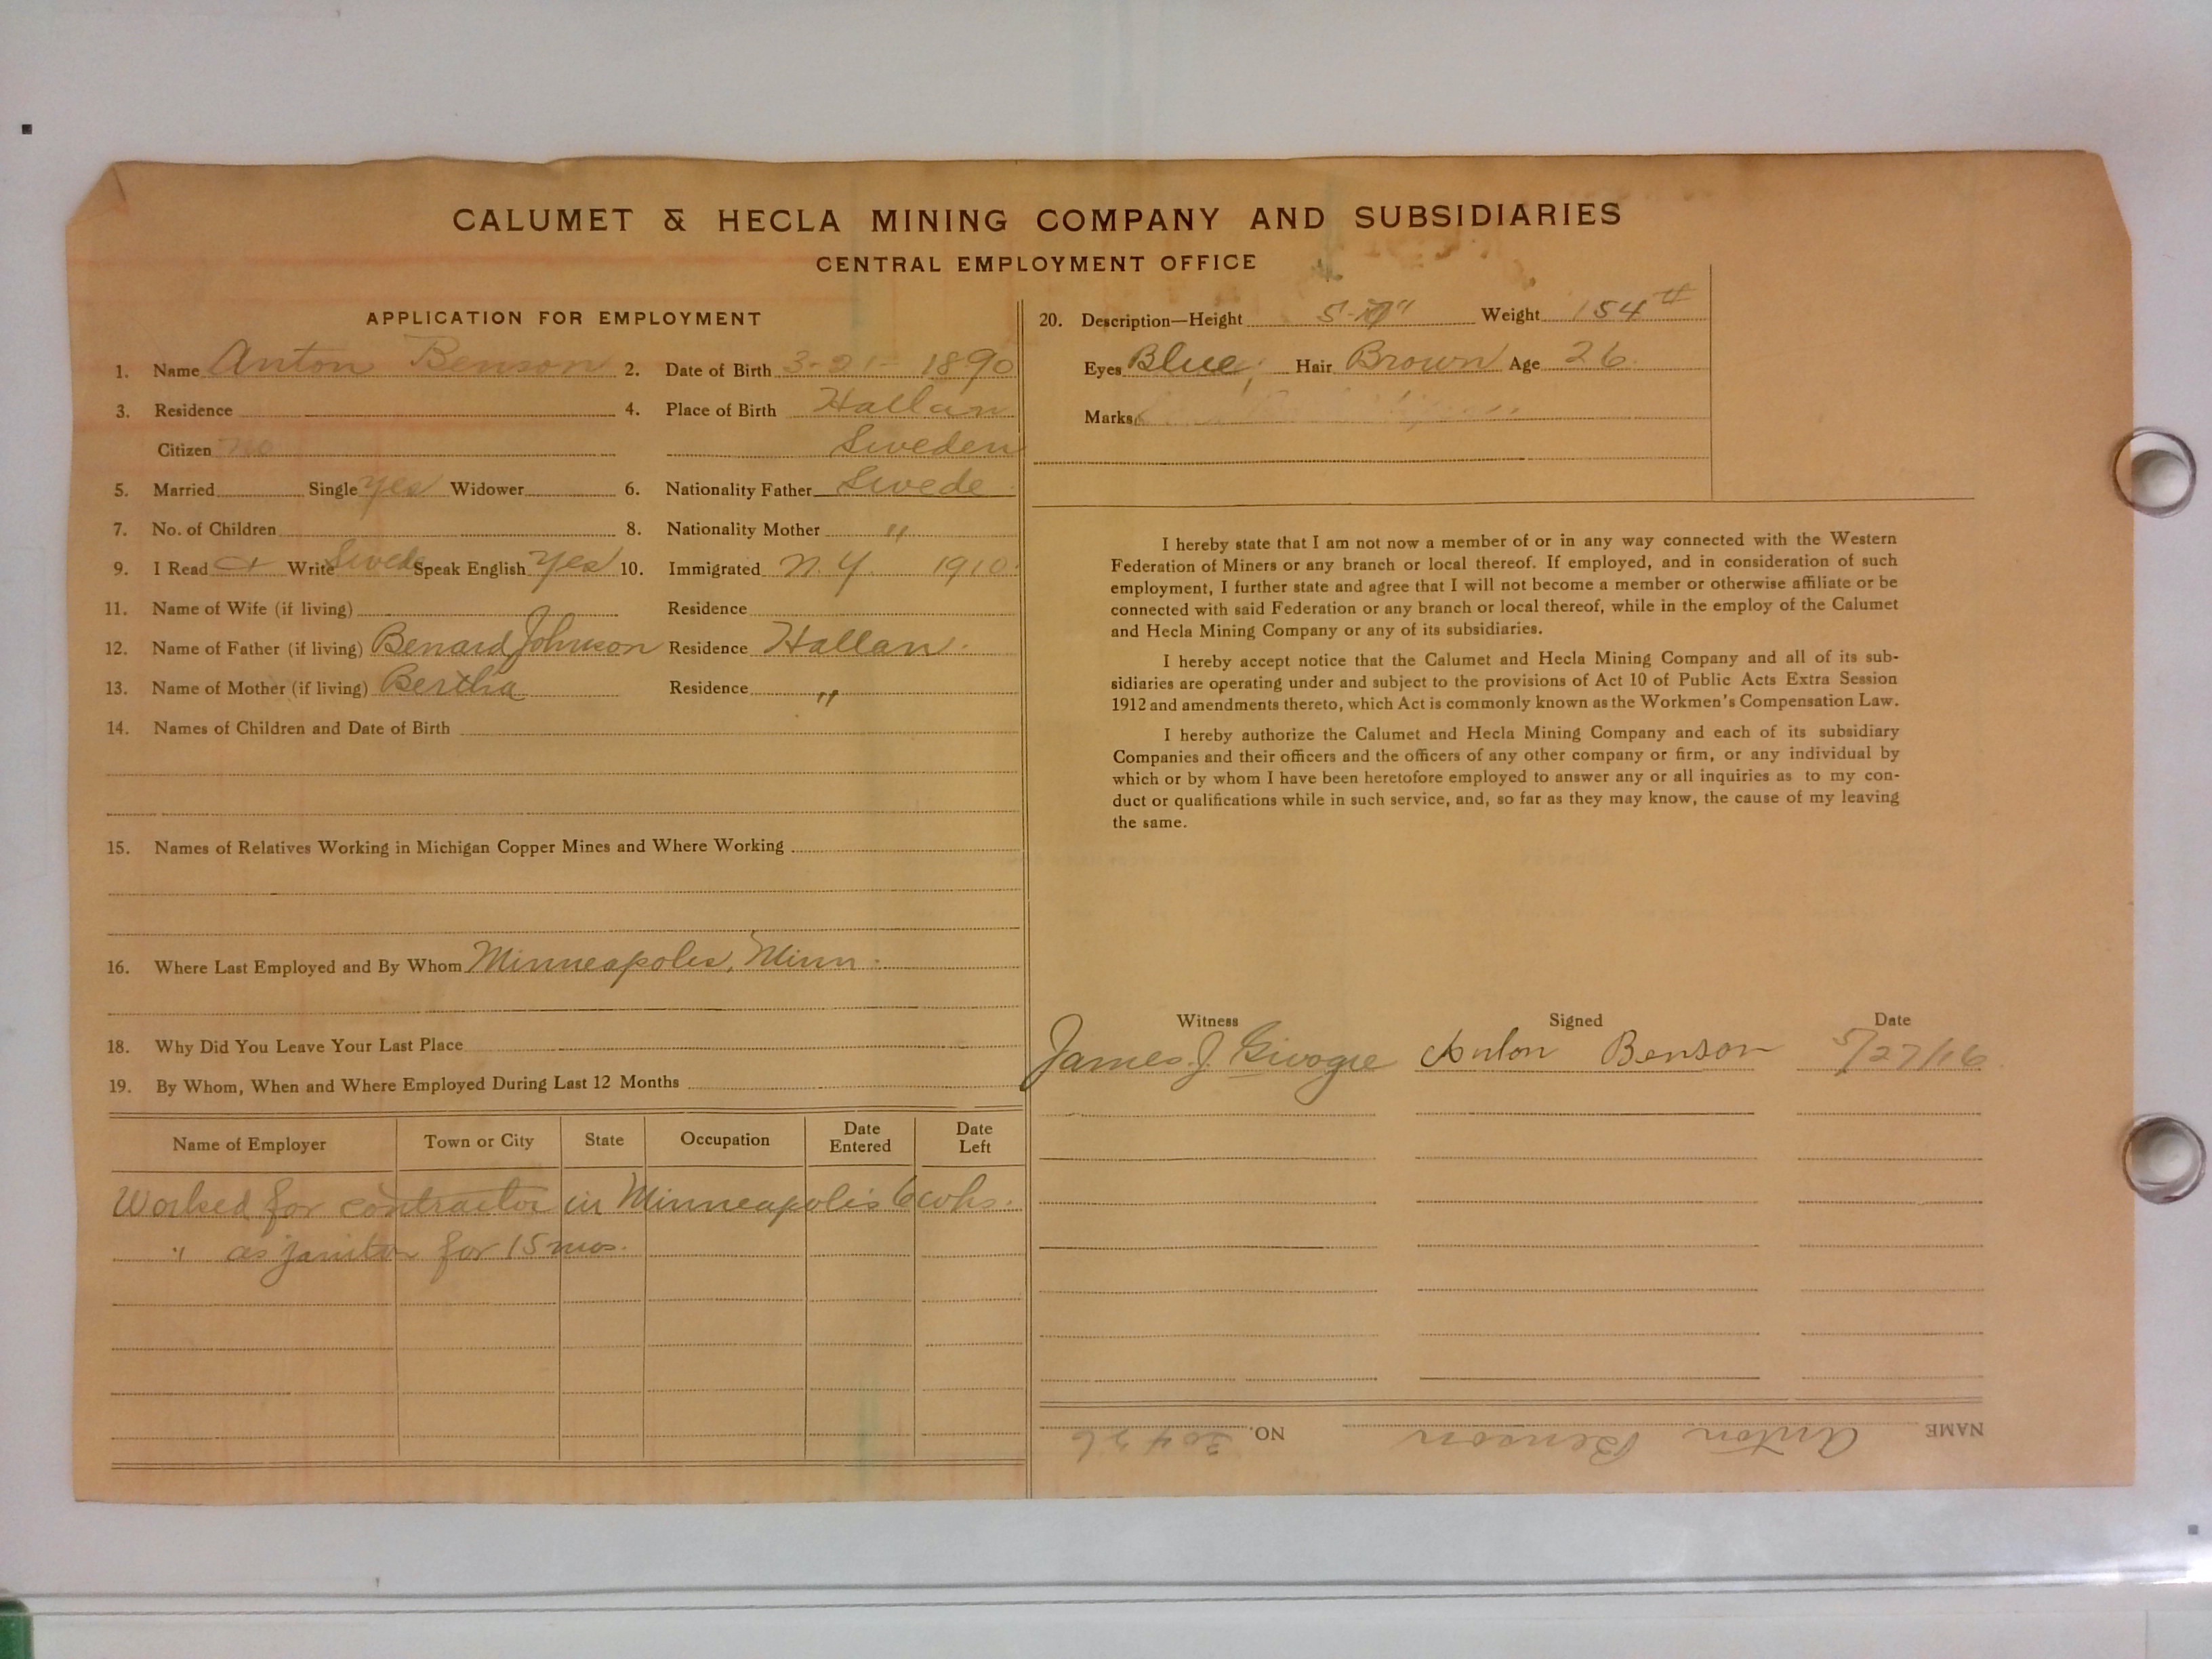 CALUMET & HECLA MINING COMPANY AND SUBSIDIARIES
CENTRAL EMPLOYMENT OFFICE
APPLICATION FOR EMPLOYMENT
1. Name Anton Benson 2. Date of Birth 3-21-1890
3. Residence 4. Place of Birth Hallan
Citizen no Sweden
5. Married Single yes Widower 6. Nationality Father Swede
7. No. of Children 8. Nationality Mother "
9. I Read + Write Swede Speak English yes 10. Immigrated N.Y. 1910
11. Name of Wife (if living) Residence
12. Name of Father (if living) Benard Johnson Residence Hallan.
13. Name of Mother (if living) Bertha Residence "
14. Names of Children and Date of Birth
15. Names of Relatives Working in Michigan Copper Mines and Where Working
16. Where Last Employed and By Whom Minneapolis, Minn.
18. Why Did You Leave Your Last Place
19. By Whom, When and Where Employed During Last 12 Months
Name of Employer Town or City State Occupation Date Entered Date Left
Worked for contractor in Minneapolis 6 wks.
" as janitor for 15 mos.
20. Description—Height Weight 154#
Eyes Blue Hair Brown Age 26.
Marks
I hereby state that I am not now a member of or in any way connected with the Western
Federation of Miners or any branch or local thereof. If employed, and in consideration of such
employment, I further state and agree that I will not become a member or otherwise affiliate or be
connected with said Federation or any branch or local thereof, while in the employ of the Calumet
and Hecla Mining Company or any of its subsidiaries.
I hereby accept notice that the Calumet and Hecla Mining Company and all of its sub-
sidiaries are operating under and subject to the provisions of Act 10 of Public Acts Extra Session
1912 and amendments thereto, which Act is commonly known as the Workmen's Compensation Law.
I hereby authorize the Calumet and Hecla Mining Company and each of its subsidiary
Companies and their officers and the officers of any other company or firm, or any individual by
which or by whom I have been heretofore employed to answer any or all inquiries as to my con-
duct or qualifications while in such service, and, so far as they may know, the cause of my leaving
the same.
Witness Signed Date
James J. Anton Benson 5/27/16
NAME Anton Benson NO. 30436